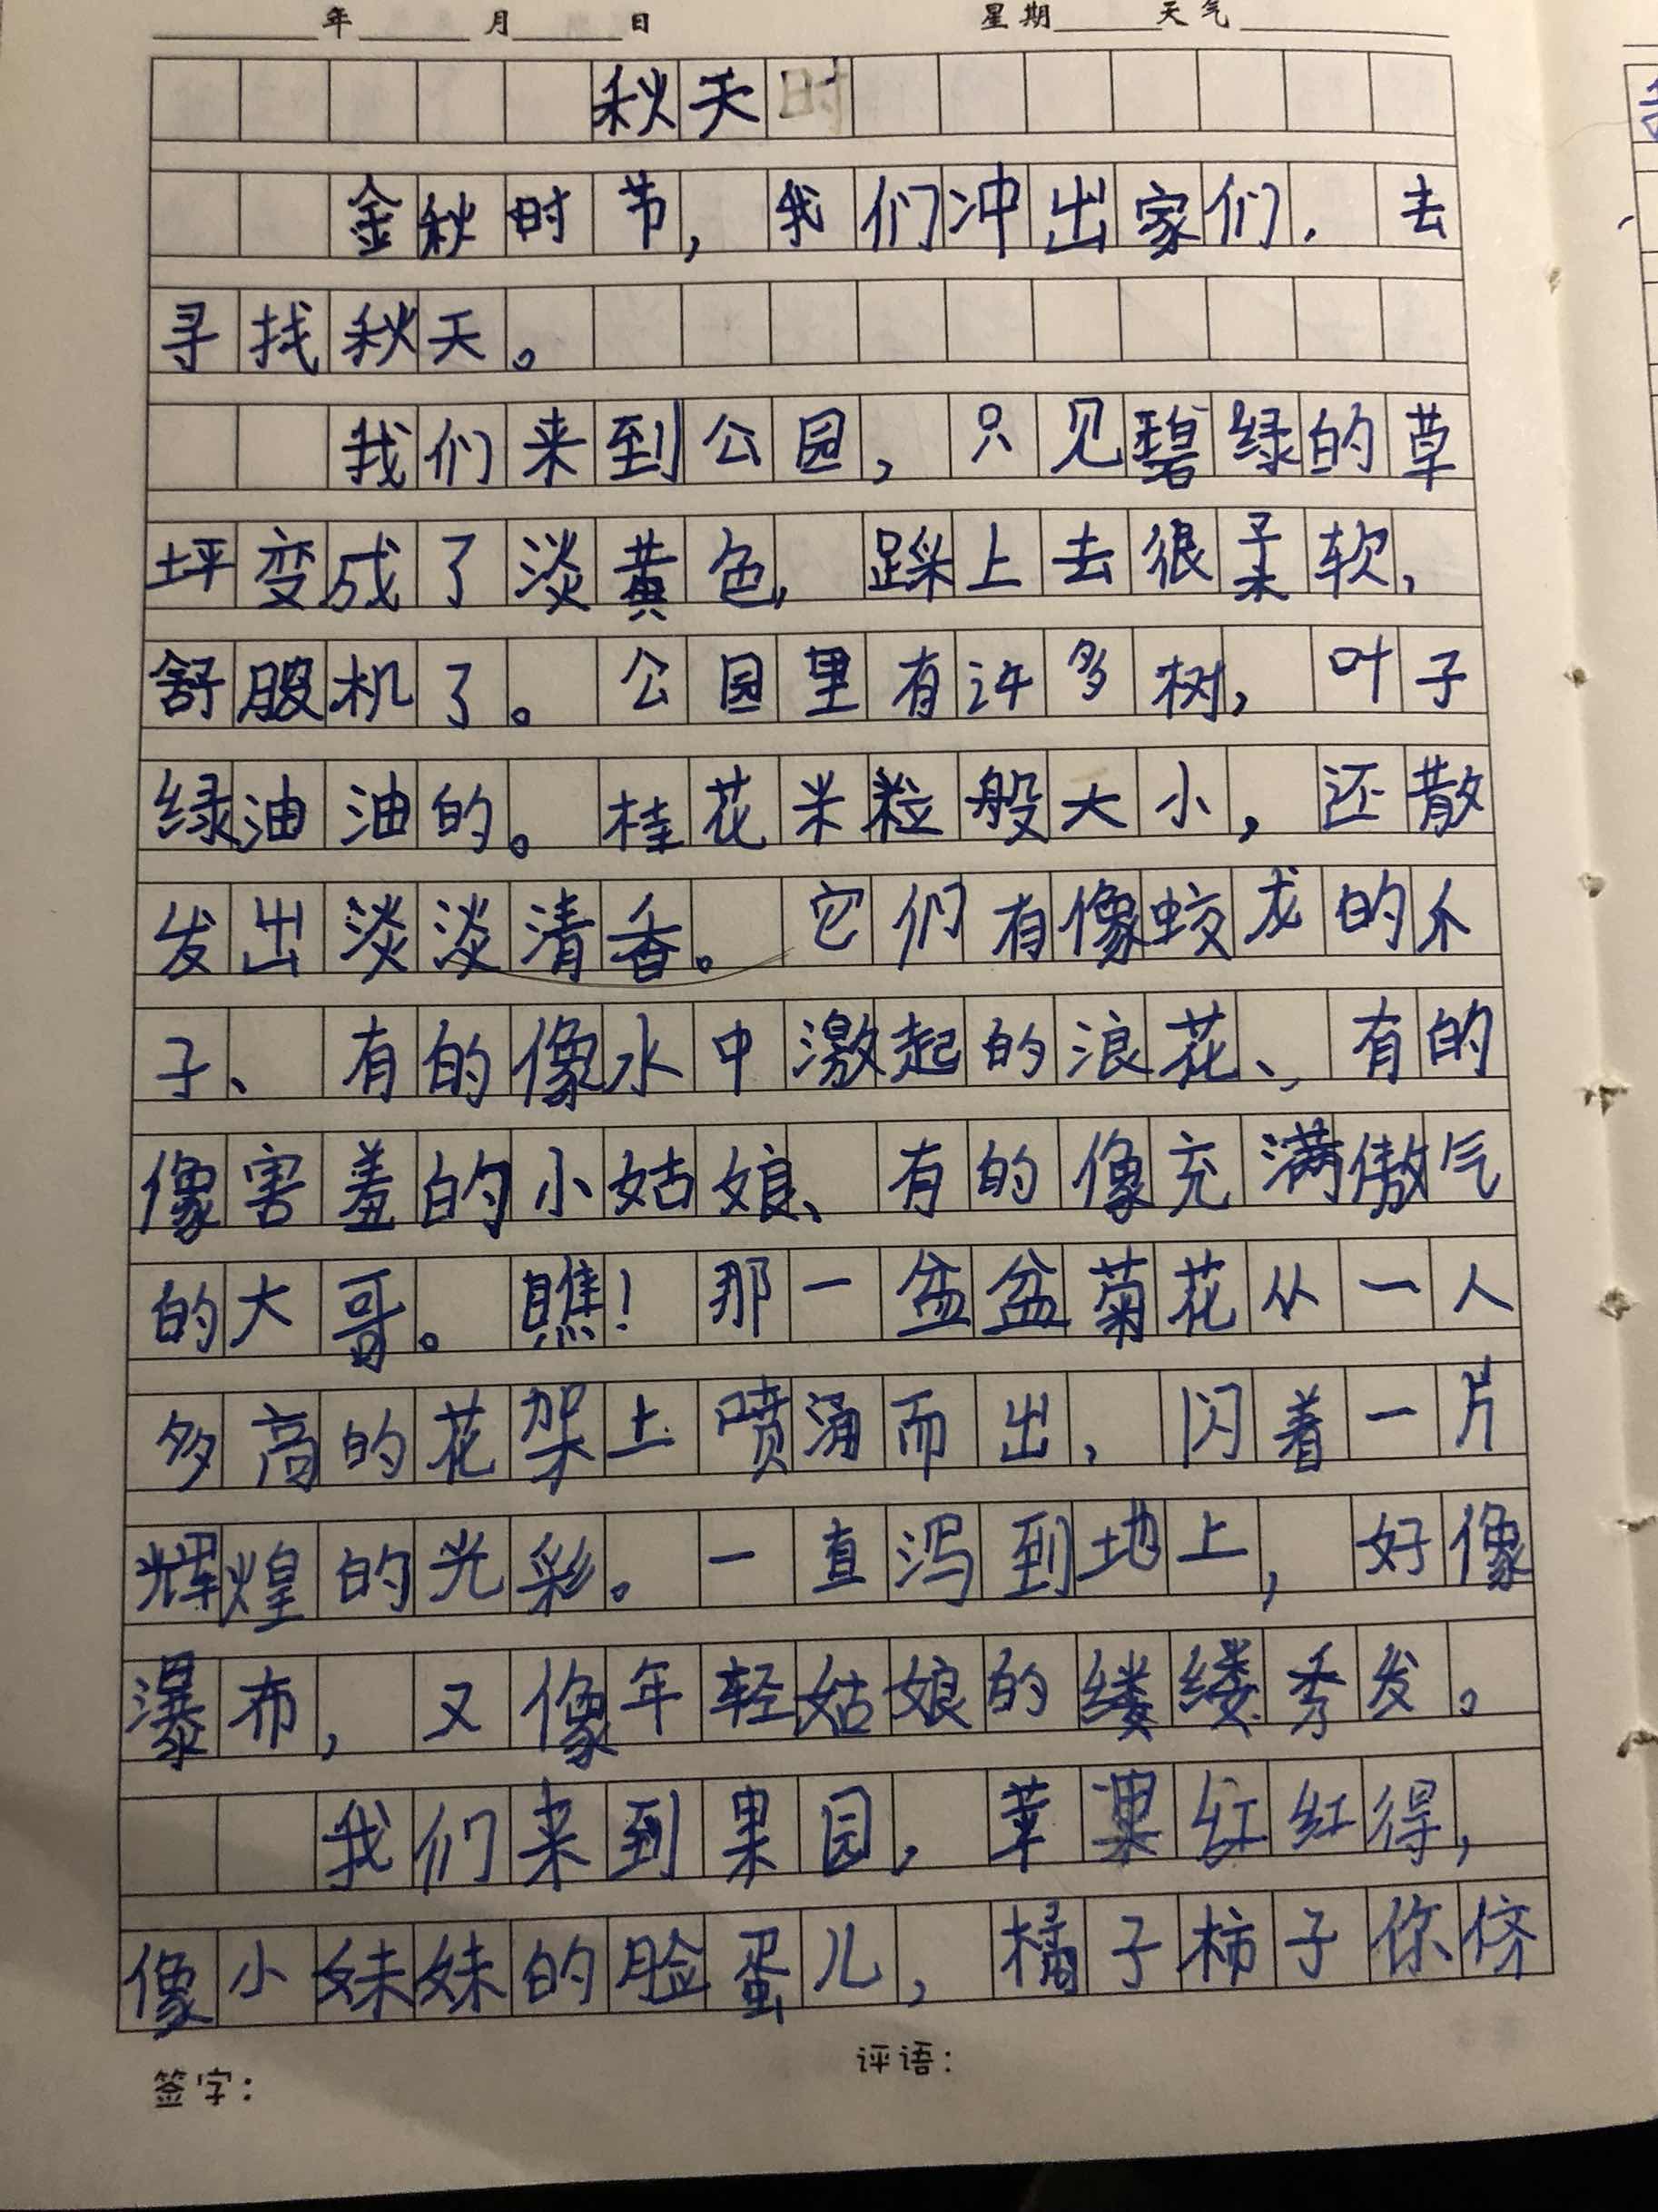 年 月 日 星期 天气
秋天时
金秋时节,我们冲出家们,去
寻找秋天。
我们来到公园,只见碧绿的草
坪变成了淡黄色,踩上去很柔软,
舒服机了。公园里有许多树,叶子
绿油油的。桂花米粒般大小,还散
发出淡淡清香。它们有像蛟龙的爪
子、有的像水中激起的浪花、有的
像害羞的小姑娘、有的像充满傲气
的大哥。瞧!那一盆盆菊花从一人
多高的花架上喷涌而出,闪着一片
辉煌的光彩。一直泻到地上,好像
瀑布,又像年轻姑娘的缕缕秀发。
我们来到果园,苹果红红得,
像小妹妹的脸蛋儿,橘子柿子你挤
签字: 评语: